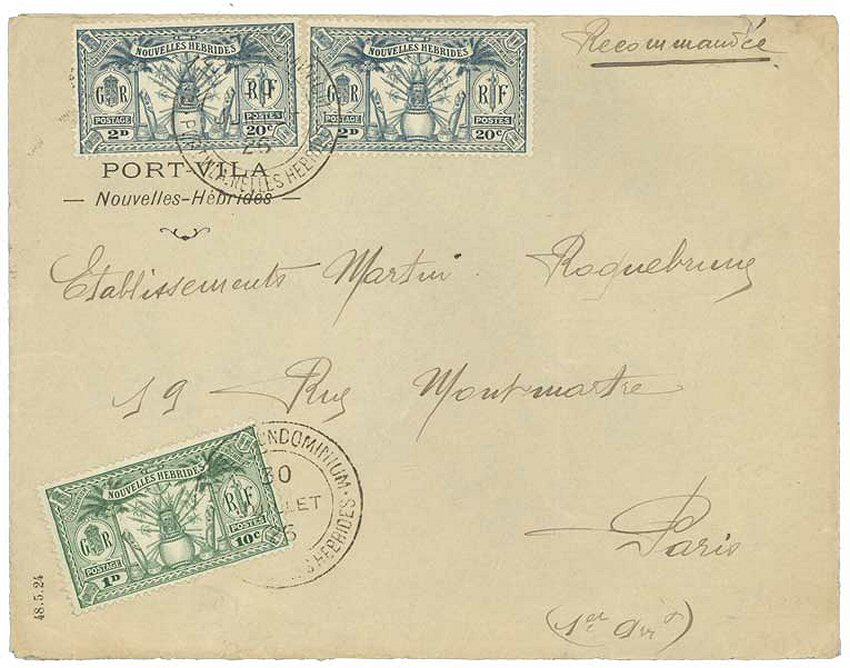 NOUVELLES HEBRIDES
G R R F
POSTAGE POSTES
2D 20c
NOUVELLES HEBRIDES
G R R F
POSTAGE POSTES
2D 20c
Recommandée
PORT-VILA
— Nouvelles-Hébrides —
Etablissements Martin Roquebrune
19 Rue Montmartre
NOUVELLES HEBRIDES
G R R F
POSTAGE POSTES
1D 10c
CONDOMINIUM
30
JUILLET
HEBRIDES
Paris
48.5.24